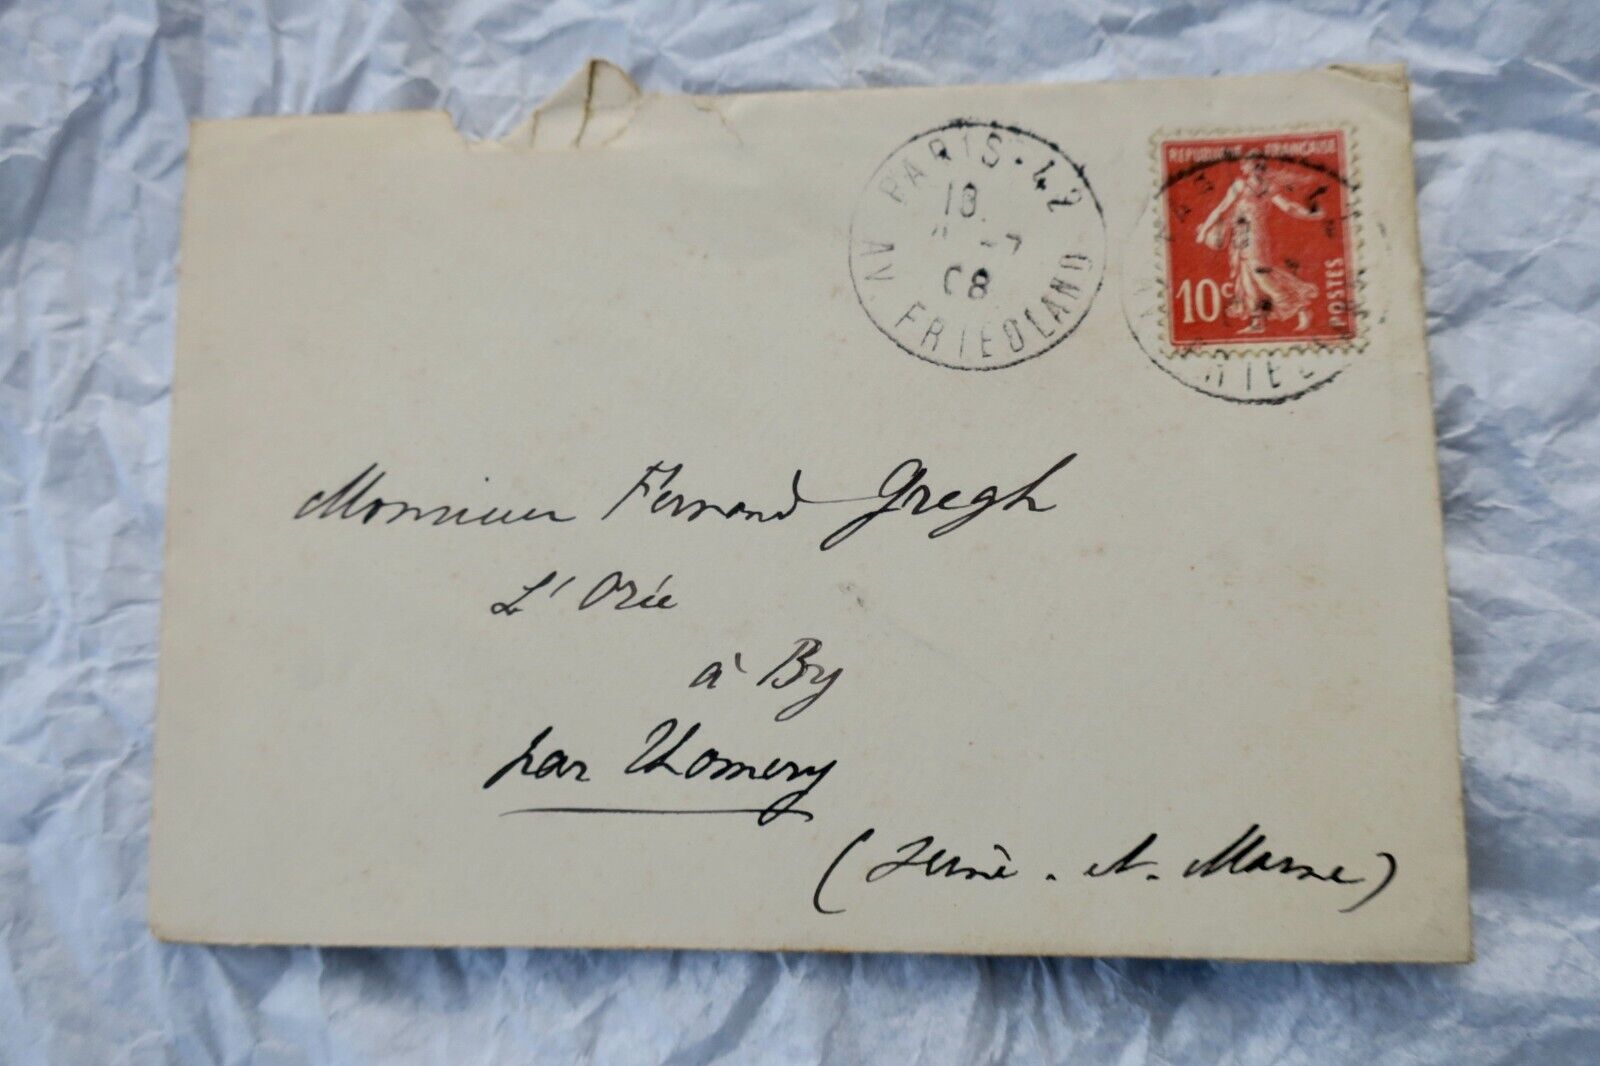 PARIS · 42
18.
-7
08
AV. FRIEDLAND
REPUBLIQUE FRANÇAISE
10c
POSTES
Monsieur Fernand Gregh
L'Orée
à By
par Thomery
(Seine-et-Marne)